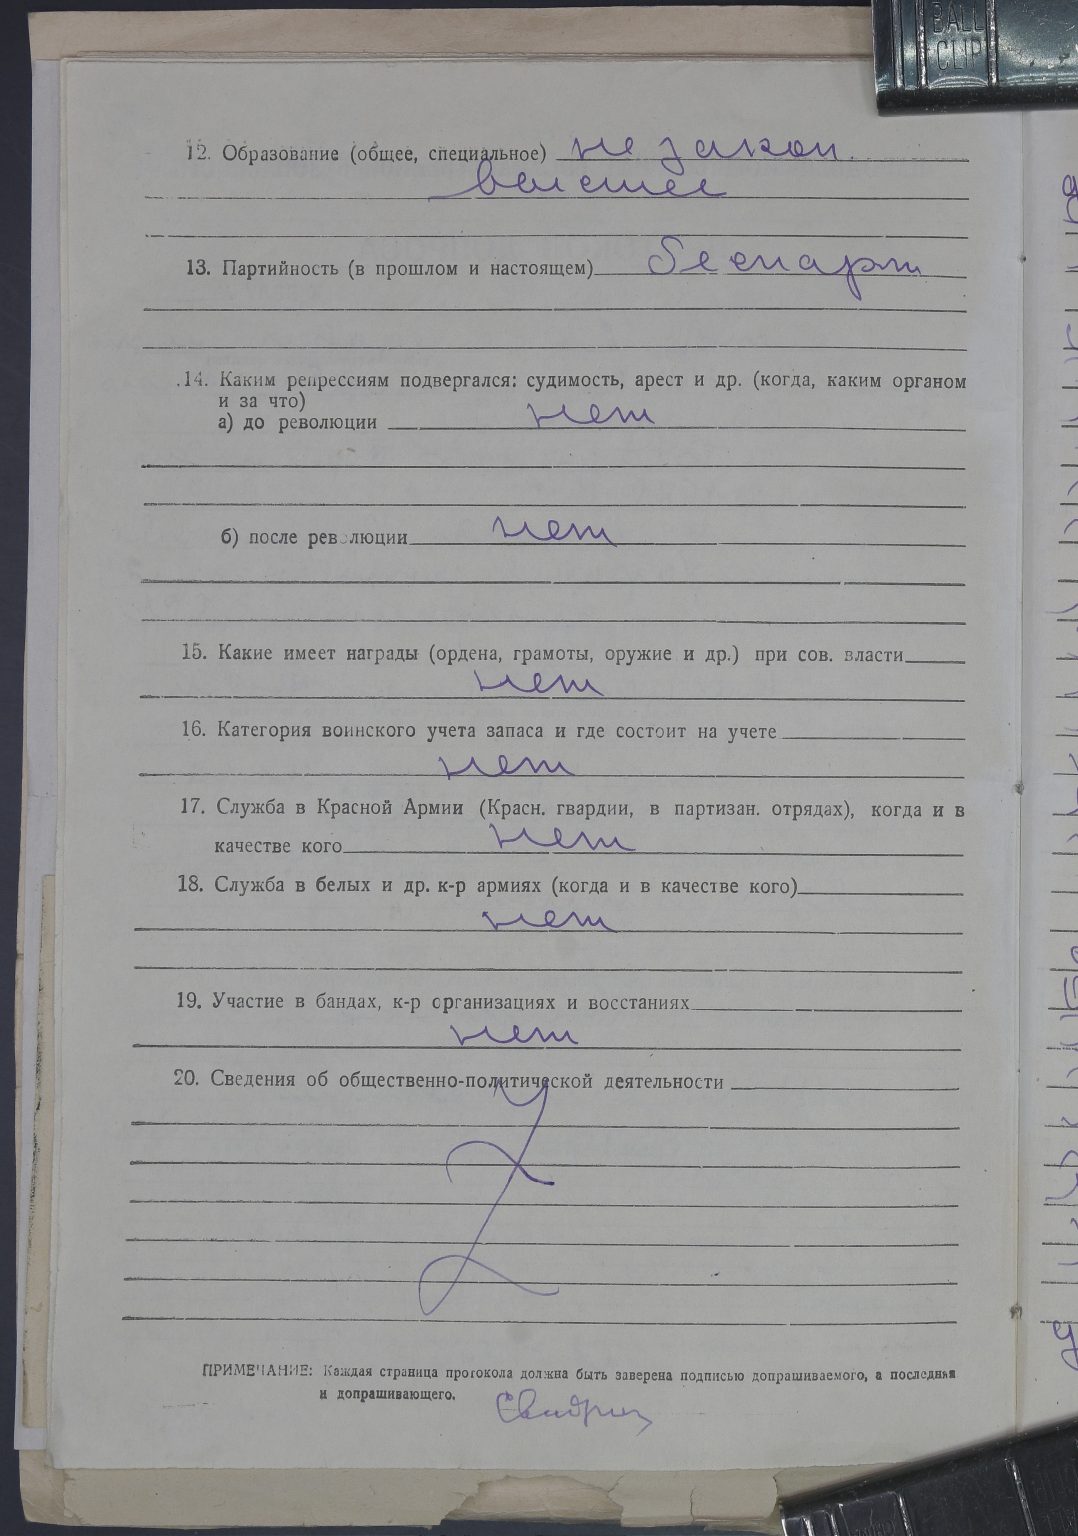 BALL
CLIP
12. Образование (общее, специальное) не закон.
высшее
13. Партийность (в прошлом и настоящем) беспарт
14. Каким репрессиям подвергался: судимость, арест и др. (когда, каким органом
и за что)
а) до революции нет
б) после революции нет
15. Какие имеет награды (ордена, грамоты, оружие и др.) при сов. власти
нет
16. Категория воинского учета запаса и где состоит на учете
нет
17. Служба в Красной Армии (Красн. гвардии, в партизан. отрядах), когда и в
качестве кого нет
18. Служба в белых и др. к-р армиях (когда и в качестве кого)
нет
19. Участие в бандах, к-р организациях и восстаниях
нет
20. Сведения об общественно-политической деятельности
ПРИМЕЧАНИЕ: Каждая страница протокола должна быть заверена подписью допрашиваемого, а последняя
и допрашивающего.